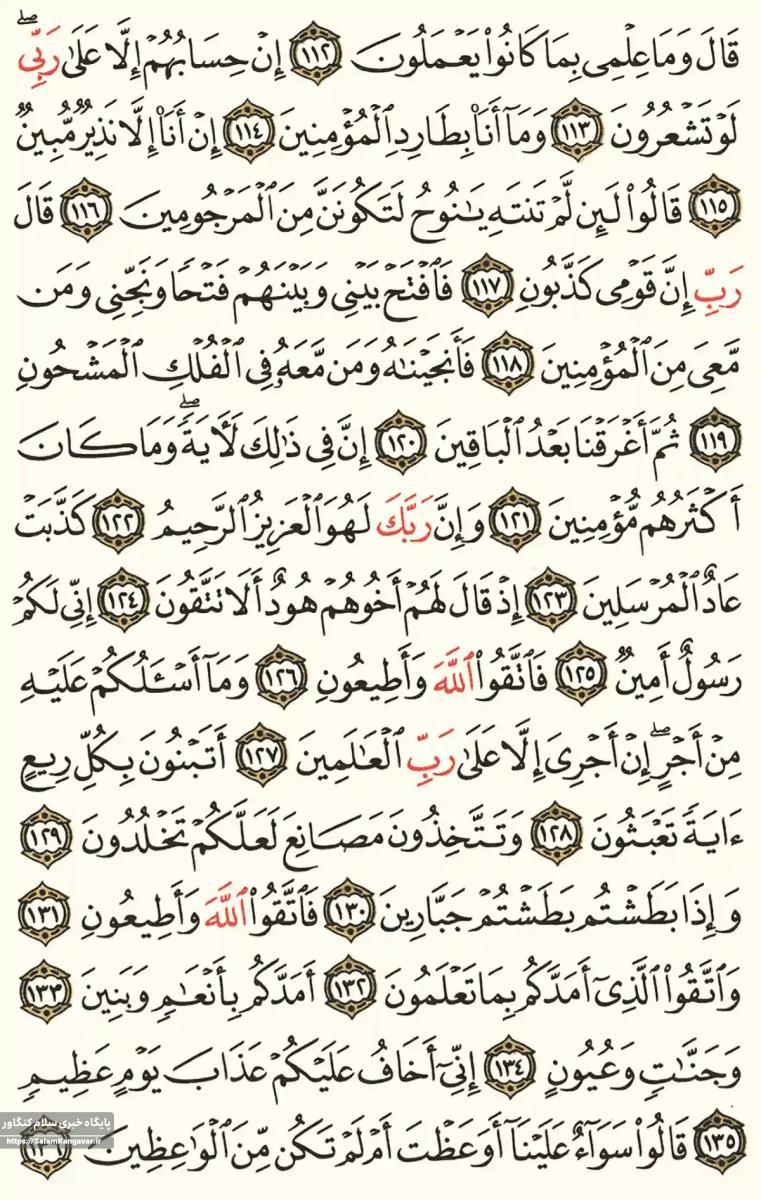 قَالَ وَمَا عِلْمِى بِمَا كَانُوا۟ يَعْمَلُونَ ﴿١١٢﴾ إِنْ حِسَابُهُمْ إِلَّا عَلَىٰ رَبِّى ۖ
لَوْ تَشْعُرُونَ ﴿١١٣﴾ وَمَآ أَنَا۠ بِطَارِدِ ٱلْمُؤْمِنِينَ ﴿١١٤﴾ إِنْ أَنَا۠ إِلَّا نَذِيرٌ مُّبِينٌ
﴿١١٥﴾ قَالُوا۟ لَئِن لَّمْ تَنتَهِ يَـٰنُوحُ لَتَكُونَنَّ مِنَ ٱلْمَرْجُومِينَ ﴿١١٦﴾ قَالَ
رَبِّ إِنَّ قَوْمِى كَذَّبُونِ ﴿١١٧﴾ فَٱفْتَحْ بَيْنِى وَبَيْنَهُمْ فَتْحًا وَنَجِّنِى وَمَن
مَّعِىَ مِنَ ٱلْمُؤْمِنِينَ ﴿١١٨﴾ فَأَنجَيْنَـٰهُ وَمَن مَّعَهُۥ فِى ٱلْفُلْكِ ٱلْمَشْحُونِ
﴿١١٩﴾ ثُمَّ أَغْرَقْنَا بَعْدُ ٱلْبَاقِينَ ﴿١٢٠﴾ إِنَّ فِى ذَٰلِكَ لَـَٔايَةً ۖ وَمَا كَانَ
أَكْثَرُهُم مُّؤْمِنِينَ ﴿١٢١﴾ وَإِنَّ رَبَّكَ لَهُوَ ٱلْعَزِيزُ ٱلرَّحِيمُ ﴿١٢٢﴾ كَذَّبَتْ
عَادٌ ٱلْمُرْسَلِينَ ﴿١٢٣﴾ إِذْ قَالَ لَهُمْ أَخُوهُمْ هُودٌ أَلَا تَتَّقُونَ ﴿١٢٤﴾ إِنِّى لَكُمْ
رَسُولٌ أَمِينٌ ﴿١٢٥﴾ فَٱتَّقُوا۟ ٱللَّهَ وَأَطِيعُونِ ﴿١٢٦﴾ وَمَآ أَسْـَٔلُكُمْ عَلَيْهِ
مِنْ أَجْرٍ ۖ إِنْ أَجْرِىَ إِلَّا عَلَىٰ رَبِّ ٱلْعَـٰلَمِينَ ﴿١٢٧﴾ أَتَبْنُونَ بِكُلِّ رِيعٍ
ءَايَةً تَعْبَثُونَ ﴿١٢٨﴾ وَتَتَّخِذُونَ مَصَانِعَ لَعَلَّكُمْ تَخْلُدُونَ ﴿١٢٩﴾
وَإِذَا بَطَشْتُم بَطَشْتُمْ جَبَّارِينَ ﴿١٣٠﴾ فَٱتَّقُوا۟ ٱللَّهَ وَأَطِيعُونِ ﴿١٣١﴾
وَٱتَّقُوا۟ ٱلَّذِىٓ أَمَدَّكُم بِمَا تَعْلَمُونَ ﴿١٣٢﴾ أَمَدَّكُم بِأَنْعَـٰمٍ وَبَنِينَ ﴿١٣٣﴾
وَجَنَّـٰتٍ وَعُيُونٍ ﴿١٣٤﴾ إِنِّىٓ أَخَافُ عَلَيْكُمْ عَذَابَ يَوْمٍ عَظِيمٍ
﴿١٣٥﴾ قَالُوا۟ سَوَآءٌ عَلَيْنَآ أَوَعَظْتَ أَمْ لَمْ تَكُن مِّنَ ٱلْوَٰعِظِينَ ﴿١٣٦﴾
پایگاه خبری سلام کنگاور
https://SalamKangavar.ir